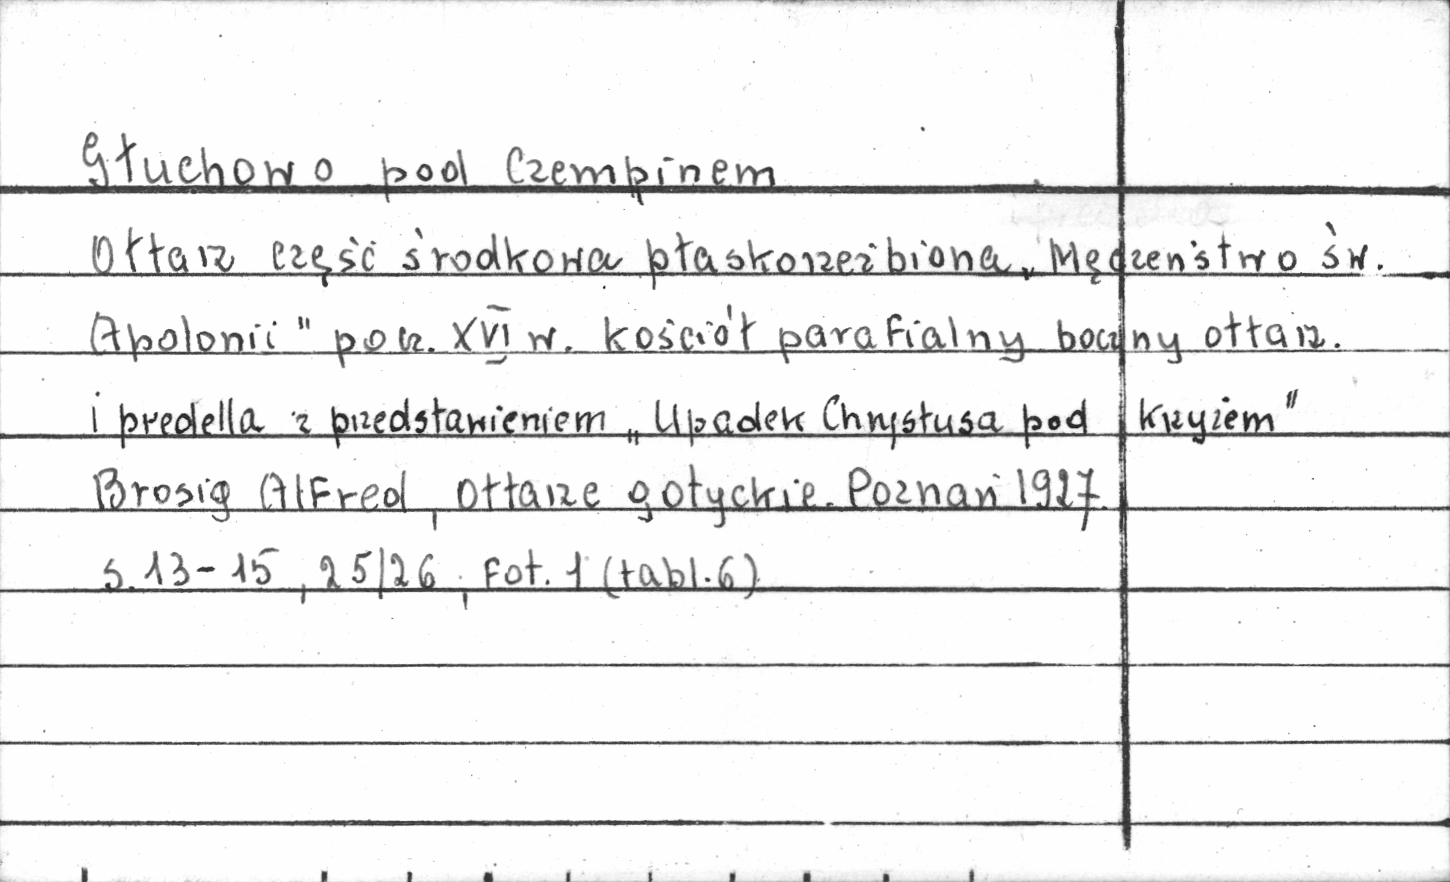 Głuchowo pod Czempinem
Ołtarz część środkowa płaskorzeźbiona „Męczeństwo św.
Apolonii" pocz. XVI w. kościół parafialny boczny ołtarz.
i predella z przedstawieniem „Upadek Chrystusa pod krzyżem"
Brosig Alfred, Ołtarze gotyckie. Poznań 1927.
s. 13-15, 25/26, Fot. 1 (tabl. 6)